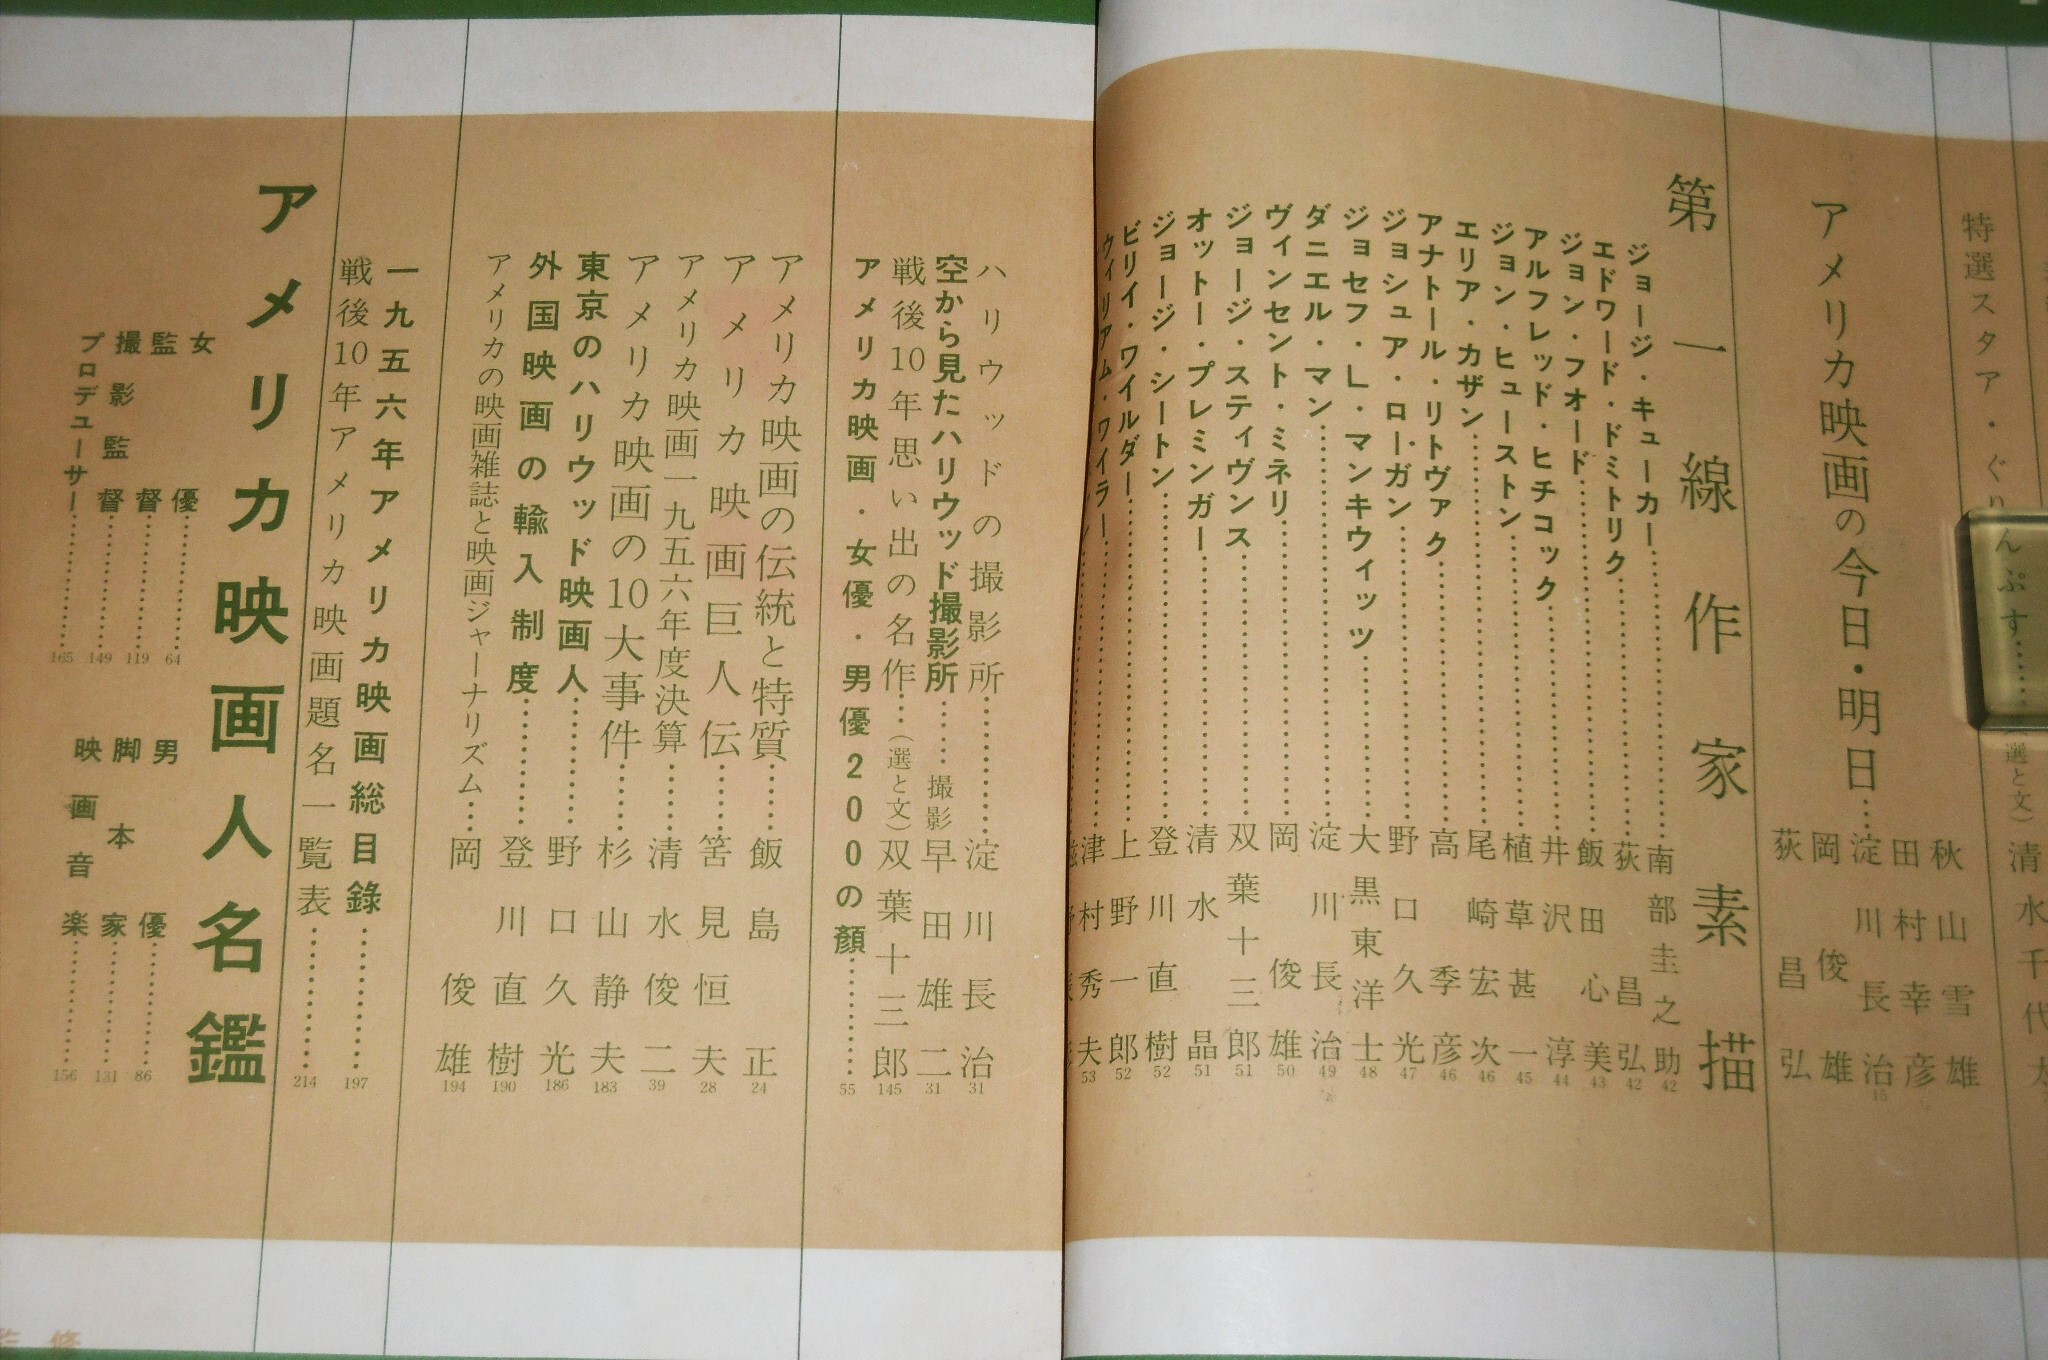 特選スタア・ぐりんぷす……(選と文)清水千代太
アメリカ映画の今日・明日…
秋山雪雄
田村幸彦
淀川長治 15
岡俊雄
荻昌弘
第一線作家素描
ジョージ・キューカー……南部圭之助 42
エドワード・ドミトリク……荻昌弘 42
ジョン・フォード……飯田心美 43
アルフレッド・ヒチコック……井沢淳 44
ジョン・ヒューストン……植草甚一 45
エリア・カザン……尾崎宏次 46
アナトール・リトヴァク……高季彦 46
ジョシュア・ローガン……野口久光 47
ジョセフ・L・マンキウィッツ……大黒東洋士 48
ダニエル・マン……淀川長治 49
ヴィンセント・ミネリ……岡俊雄 50
ジョージ・スティヴンス……双葉十三郎 51
オットー・プレミンガー……清水晶 51
ジョージ・シートン……登川直樹 52
ビリイ・ワイルダー……上野一郎 52
ウィリアム・ワイラー……津村秀夫 53
ハリウッドの撮影所……淀川長治 31
空から見たハリウッド撮影所……撮影 早田雄二 31
戦後10年思い出の名作…(選と文)双葉十三郎 145
アメリカ映画・女優・男優200の顔……55
アメリカ映画の伝統と特質……飯島正 24
アメリカ映画巨人伝……筈見恒夫 28
アメリカ映画一九五六年度決算……清水俊二 39
アメリカ映画の10大事件……杉山静夫 183
東京のハリウッド映画人……野口久光 186
外国映画の輸入制度……登川直樹 190
アメリカの映画雑誌と映画ジャーナリズム…岡俊雄 194
一九五六年アメリカ映画総目録……197
戦後10年アメリカ映画題名一覧表……214
アメリカ映画人名鑑
女優……64
男優……86
監督……119
脚本家……131
撮影監督……149
映画音楽……156
プロデューサー……165